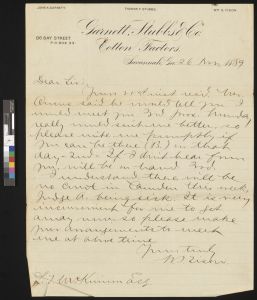 JOHN K. GARNETT. THOMAS F. STUBBS. WM. B. DIXON.
Garnett, Stubbs & Co
Cotton Factors,
96 BAY STREET
P.O. BOX 93.
Savannah, Ga. 26 Nov 1889
Dear Sir:
Yours 20th inst rec'd. Mr.
said he would tell you I
would meet you 3rd Mon. Monday
really would suit me better, so
please write me promptly if
you can be there (B) on that
day - 2nd - If I don't hear from
you, will be on hand 3rd.
I understand there will be
no court in Camden this week.
Judge A. being sick. It is very
inconvenient for me to get
away now so please make
your arrangements to meet
me at above time.
Yours truly
L. J. McKinnon Esq